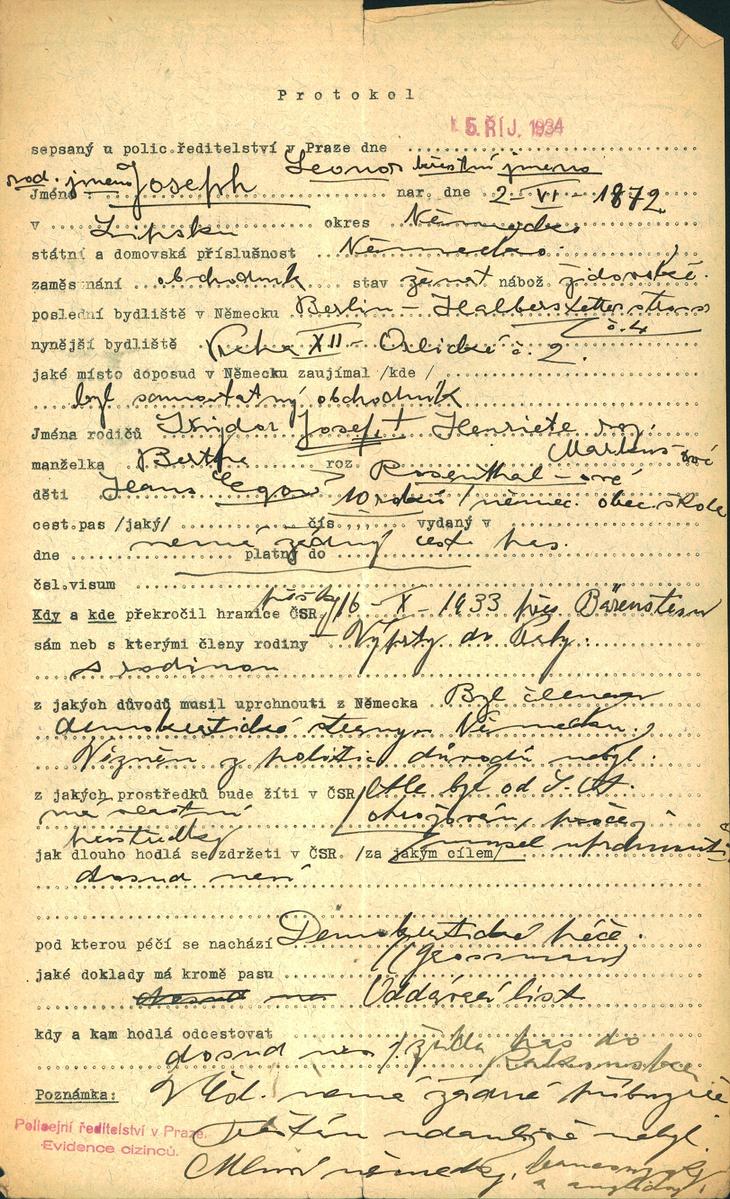 Protokol
5. ŘÍJ. 1934
sepsaný u polic.ředitelství v Praze dne
rod. jmeno Leonor křestní jmeno
Jméno: Joseph nar. dne 2-VI-1872
v Lipsku okres Německo
státní a domovská příslušnost Německo.
zaměstnání obchodník stav ženat nábož židovské.
poslední bydliště v Německu Berlin - Halberstetterstrass
č. 4
nynější bydliště Praha XII - Orlická č. 2.
jaké místo doposud v Německu zaujímal /kde /
byl samostatný obchodník
Jména rodičů Isidor Josef + Henriete roz.
Markus-ové
manželka Bertha roz Rosenthal-ové
děti Hans 10 roků / němec. obec. škola
cest.pas /jaký/ čís vydaný v
nemá žádný cest. pas.
dne platný do
čsl.visum
Kdy a kde překročil hranice ČSR pěšky 16-X-1933 přes Bärenstein
sám neb s kterými členy rodiny Výprty do Prahy.
s rodinou
z jakých důvodů musil uprchnouti z Německa Byl členem
demokratické strany v Německu,
Vězněn z politic důvodů nebyl.
z jakých prostředků bude žíti v ČSR / byl od S.A.
má vlastní
prostředky
jak dlouho hodlá se zdržeti v ČSR. /za jakým cílem/ musel uprchnouti
dosud neví
pod kterou péčí se nachází Demokratické péče.
(Grossmann)
jaké doklady má kromě pasu
Oddávací list
kdy a kam hodlá odcestovat
dosud ne / žádá pas do
Rakouska
Poznámka: V čsl. nemá žádné příbuzné
Trestán nebyl.
Mluví německy, francouzsky
a anglicky.
Policejní ředitelství v Praze.
Evidence cizinců.